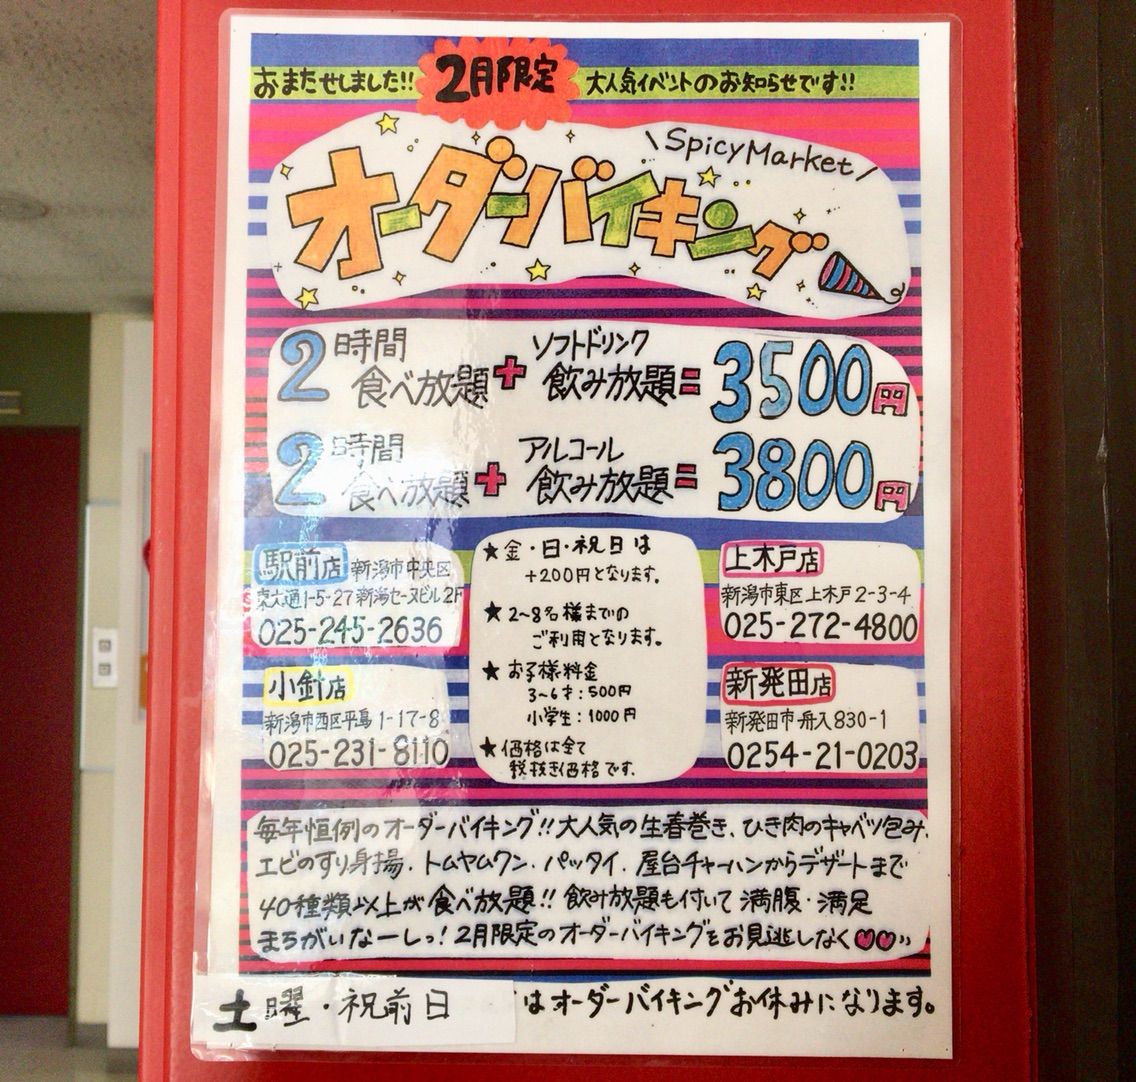 おまたせしました!! 2月限定 大人気イベントのお知らせです!!
\SpicyMarket/
オーダーバイキング
2時間食べ放題+ソフトドリンク飲み放題=3500円
2時間食べ放題+アルコール飲み放題=3800円
駅前店 新潟市中央区
東大通1-5-27 新潟セーヌビル2F
025-245-2636
小針店
新潟市西区平島1-17-8
025-231-8110
★金・日・祝日は
+200円となります。
★2~8名様までの
ご利用となります。
★お子様料金
3~6才:500円
小学生:1000円
★価格は全て
税抜き価格です。
上木戸店
新潟市東区上木戸2-3-4
025-272-4800
新発田店
新発田市舟入830-1
0254-21-0203
毎年恒例のオーダーバイキング!!大人気の生春巻き、ひき肉のキャベツ包み、
エビのすり身揚、トムヤムクン、パッタイ、屋台チャーハンからデザートまで
40種類以上が食べ放題!!飲み放題も付いて満腹・満足
まちがいなーしっ!2月限定のオーダーバイキングをお見逃しなく♡♡
土曜・祝前日はオーダーバイキングお休みになります。